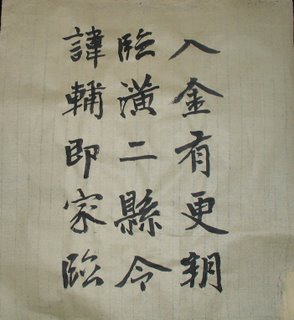 入金有更朝
臨潢二縣令
諱輔即家臨